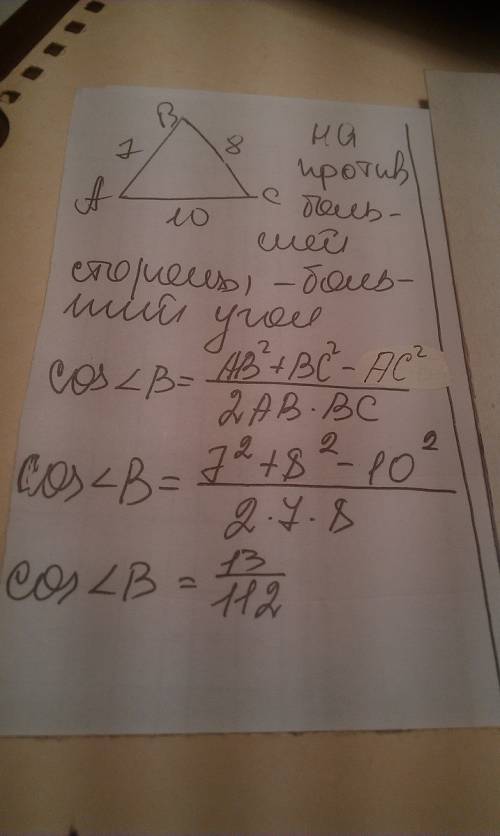 B
7
8
A
C
10
на
против
боль-
шей
стороны, -боль-
ший угол
cos∠B = (AB²+BC²-AC²)/(2AB·BC)
cos∠B = (7²+8²-10²)/(2·7·8)
cos∠B = 13/112